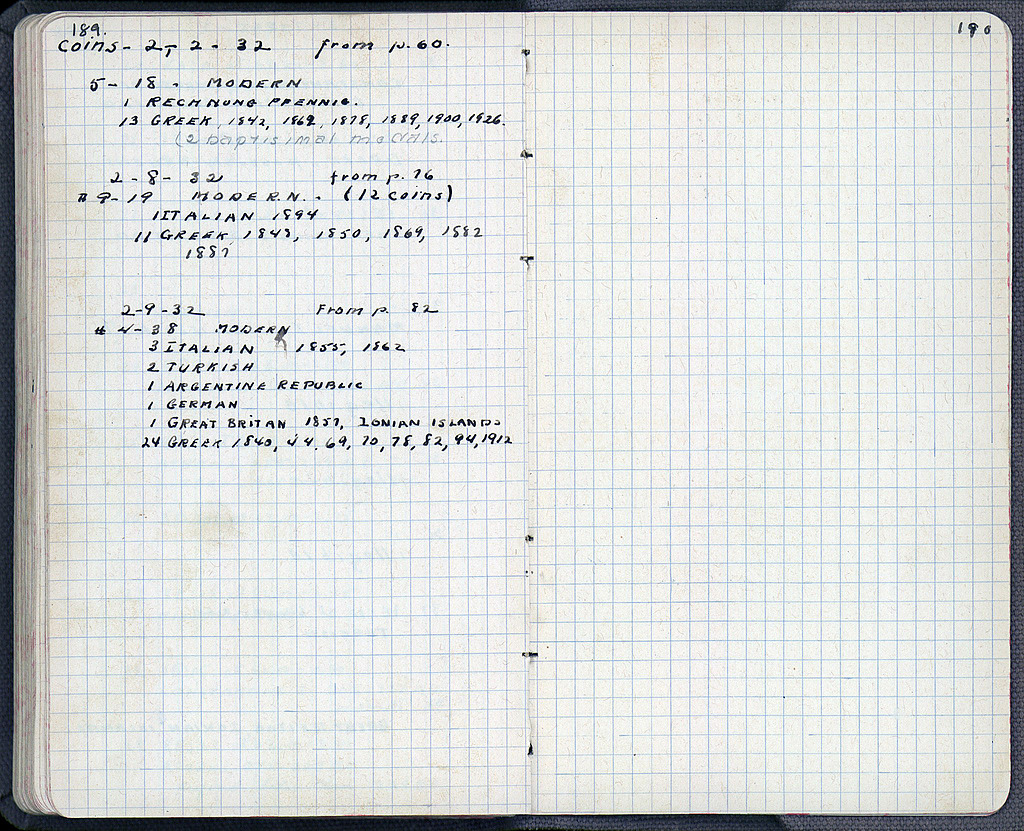 189.
Coins - 2, 2 - 32 from p. 60.
5 - 18 - MODERN
1 RECHNUNG PFENNIG.
13 GREEK, 1842, 1869, 1878, 1889, 1900, 1926.
(2 baptisimal medals.
2 - 8 - 32 from p. 76
# 9 - 19 MODERN. - (12 coins)
1 ITALIAN 1894
11 GREEK 1848, 1850, 1869, 1882
1887
2 - 9 - 32 From p. 82
# 4 - 38 MODERN
3 ITALIAN 1855, 1862
2 TURKISH
1 ARGENTINE REPUBLIC
1 GERMAN
1 GREAT BRITAN 1857, IONIAN ISLANDS
24 GREEK 1840, 44, 69, 70, 78, 82, 94, 1912
190